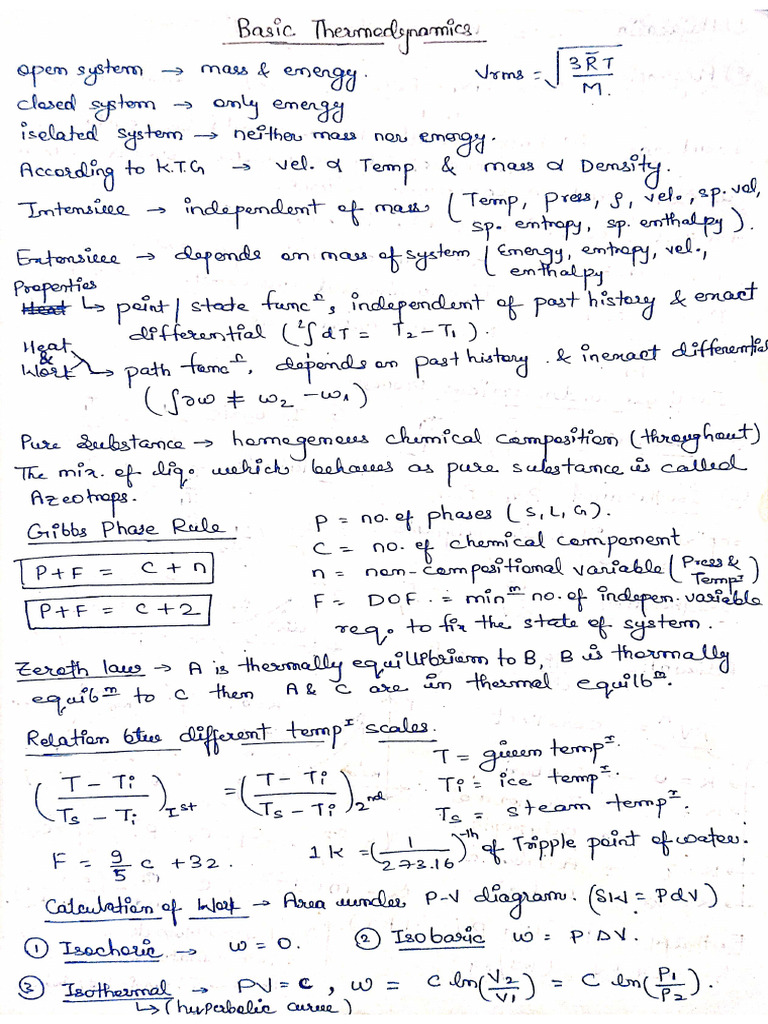 Basic Thermodynamics
open system → mass & energy. Vrms = √(3R̄T/M).
closed system → only energy
isolated system → neither mass nor energy.
According to K.T.G → vel. α Temp & mass α Density.
Intensive → independent of mass (Temp, Press, ρ, velo., sp. vol,
sp. entropy, sp. enthalpy).
Extensive → depends on mass of system (Energy, entropy, vel.,
enthalpy
Properties
Heat ↳ point / state funcⁿ, independent of past history & exact
differential (²∫dT = T₂ - T₁).
Heat & Work → path funcⁿ, depends on past history & inexact differential
(∫∂w ≠ w₂ - w₁)
Pure Substance → homogenous chemical composition (throughout)
The mix. of liq. which behaves as pure substance is called
Azeotrops.
Gibbs Phase Rule
P = no. of phases (S, L, G).
C = no. of chemical component
P+F = C+n
n = non-compositional variable (Press & Tempʳ)
P+F = C+2
F = DOF. = minᵐ no. of indepen. variable
req. to fix the state of system.
Zeroth law → A is thermally equillibrium to B, B is thermally
equibᵐ to C then A & C are in thermal equilbᵐ.
Relation btw different tempʳ scales.
((T - Ti)/(Ts - Ti))Ist = ((T - Ti)/(Ts - Ti))2nd
T = given tempʳ.
Ti = ice tempʳ.
Ts = steam tempʳ.
F = 9/5 C + 32. 1 K = (1/273.16)⁻ᵗʰ of Tripple point of water.
Calculation of Work → Area under P-V diagram. (SW = PdV)
① Isochoric → W = 0. ② Isobaric W = P·ΔV.
③ Isothermal → PV = C, W = C ln(V2/V1) = C ln(P1/P2).
↳ (hyperbolic curve)